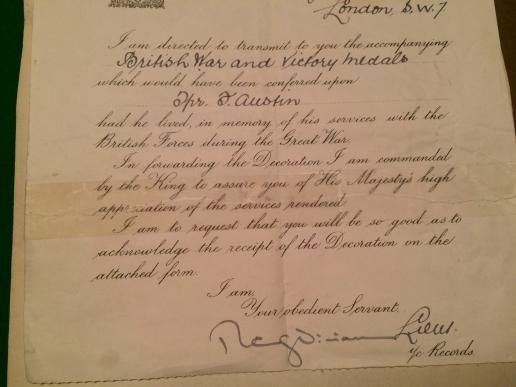 London, S.W.7
I am directed to transmit to you the accompanying
British War and Victory Medals
which would have been conferred upon
Tpr. F. Austin
had he lived, in memory of his services with the
British Forces during the Great War.
In forwarding the Decoration I am commanded
by the King to assure you of His Majesty's high
appreciation of the services rendered.
I am to request that you will be so good as to
acknowledge the receipt of the Decoration on the
attached form.
I am,
Your obedient Servant.
i/c Records